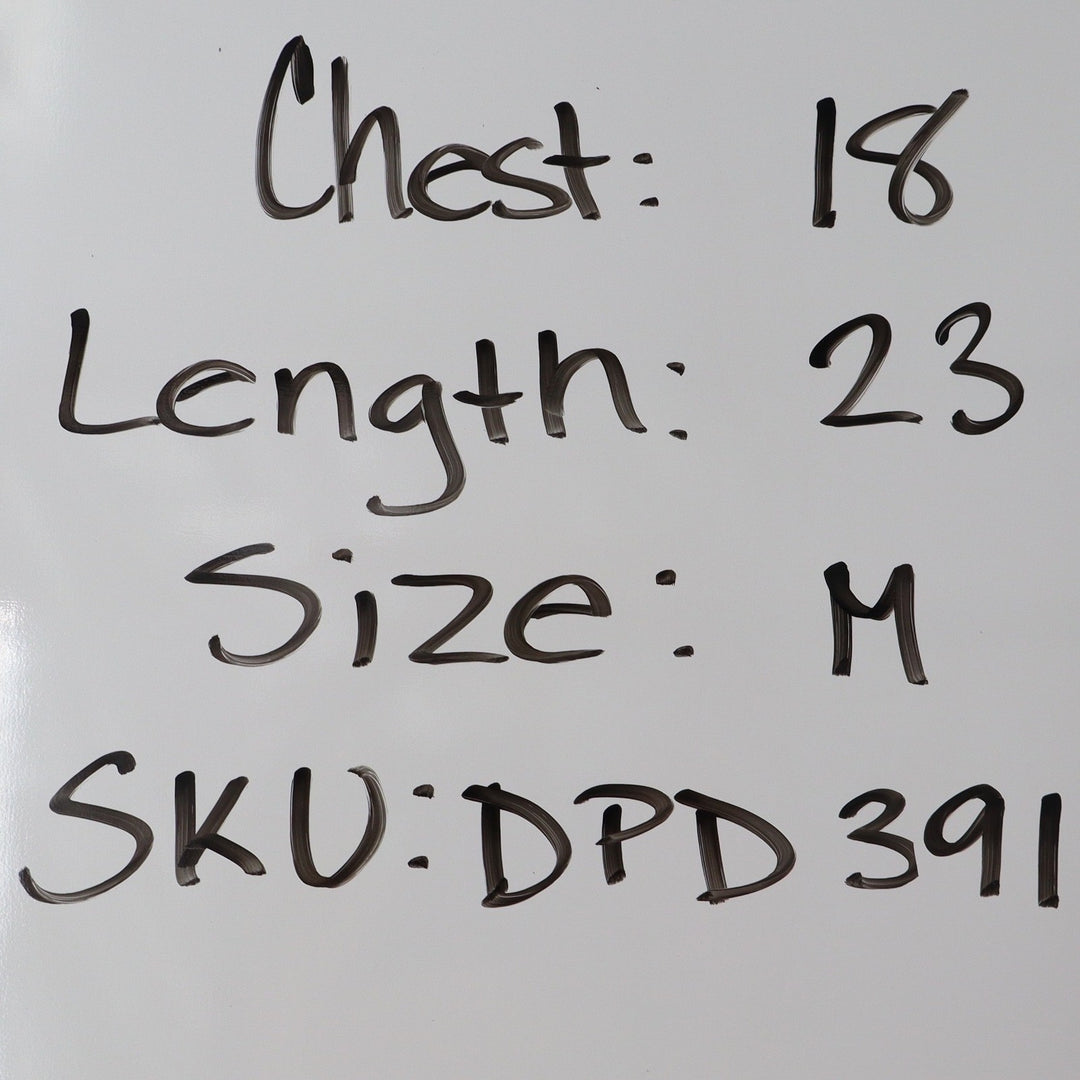 Chest: 18
Length: 23
Size: M
SKU: DPD 391